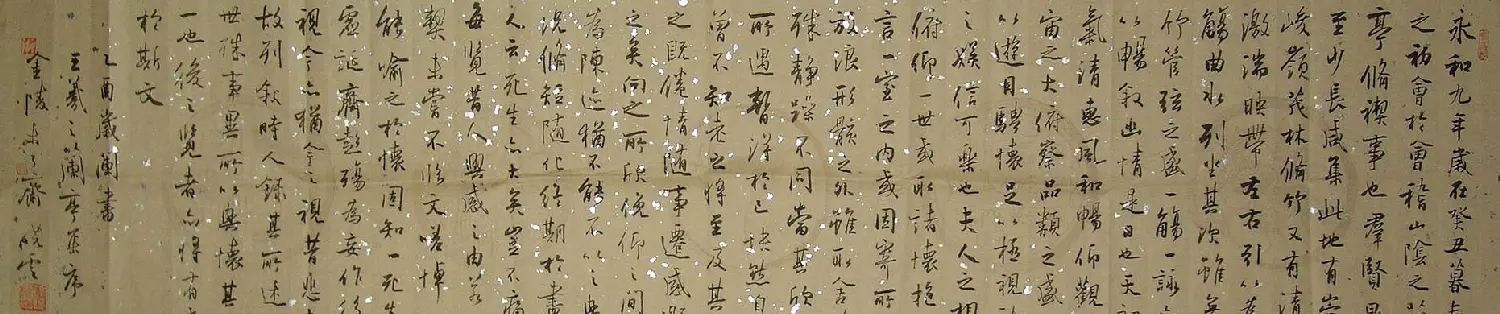 永和九年歲在癸丑暮
之初會於會稽山陰之
亭脩禊事也羣賢畢
至少長咸集此地有崇
峻嶺茂林脩竹又有清
激湍暎帶左右引以為
觴曲水列坐其次雖無
竹管弦之盛一觴一詠
以暢敘幽情是日也天朗
氣清惠風和暢仰觀
宙之大俯察品類之盛
以遊目騁懷足以極視
之娛信可樂也夫人之相
俯仰一世或取諸懷抱
言一室之內或因寄所
放浪形骸之外雖取舍
殊靜躁不同當其欣
所遇暫得於己快然自
曾不知老之將至及其
之既倦情隨事遷感慨
之矣向之所欣俛仰之間
為陳迹猶不能不以之興
況脩短隨化終期於盡
人云死生亦大矣豈不痛
每覽昔人興感之由若
契未嘗不臨文嗟悼
能喻之於懷固知一死生
虛誕齊彭殤為妄作後
視今亦猶今之視昔悲
故列敘時人錄其所述
世殊事異所以興懷其
一也後之覽者亦將有
於斯文
乙酉歲闌書
王羲之蘭亭集序
金陵未了齋曉雲